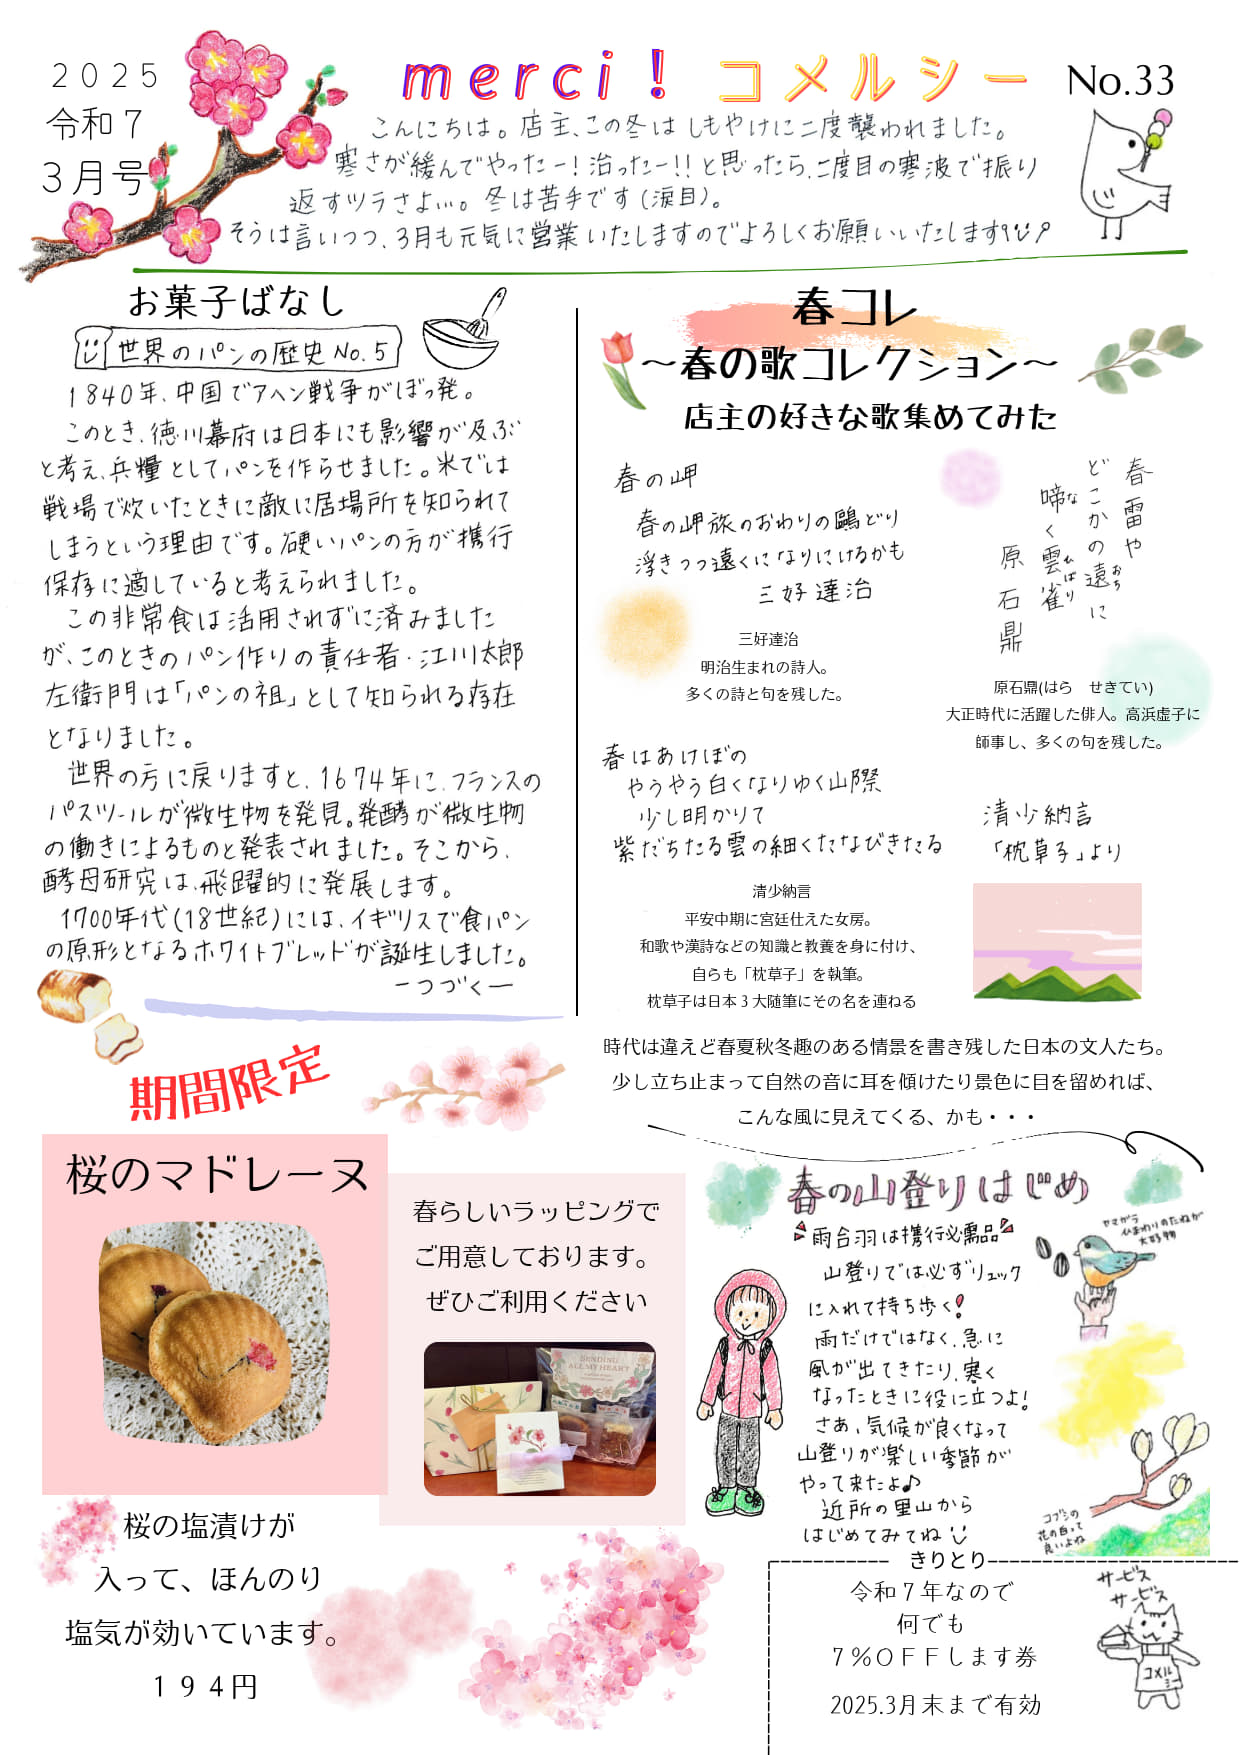 2025
令和7
3月号
merci！コメルシー No.33
こんにちは。店主、この冬はしもやけに二度襲われました。
寒さが緩んでやったー！治ったー!!と思ったら、二度目の寒波で振り
返すツラさよ…。冬は苦手です(涙目)。
そうは言いつつ、3月も元気に営業いたしますのでよろしくお願いいたします
お菓子ばなし
世界のパンの歴史 No.5
1840年、中国でアヘン戦争がぼっ発。
このとき、徳川幕府は日本にも影響が及ぶ
と考え、兵糧としてパンを作らせました。米では
戦場で炊いたときに敵に居場所を知られて
しまうという理由です。硬いパンの方が携行
保存に適していると考えられました。
この非常食は活用されずに済みました
が、このときのパン作りの責任者・江川太郎
左衛門は「パンの祖」として知られる存在
となりました。
世界の方に戻りますと、1674年に、フランスの
パスツールが微生物を発見。発酵が微生物
の働きによるものと発表されました。そこから、
酵母研究は、飛躍的に発展します。
1700年代(18世紀)には、イギリスで食パン
の原形となるホワイトブレッドが誕生しました。
ーつづくー
春コレ
～春の歌コレクション～
店主の好きな歌集めてみた
春の岬
春の岬旅のおわりの鷗どり
浮きつつ遠くになりにけるかも
三好達治
三好達治
明治生まれの詩人。
多くの詩と句を残した。
春雷や
どこかの遠(おち)に
啼(な)く雲雀(ひばり)
原石鼎
原石鼎(はら　せきてい)
大正時代に活躍した俳人。高浜虚子に
師事し、多くの句を残した。
春はあけぼの
やうやう白くなりゆく山際
少し明かりて
紫だちたる雲の細くたなびきたる
清少納言
「枕草子」より
清少納言
平安中期に宮廷仕えた女房。
和歌や漢詩などの知識と教養を身に付け、
自らも「枕草子」を執筆。
枕草子は日本3大随筆にその名を連ねる
時代は違えど春夏秋冬趣のある情景を書き残した日本の文人たち。
少し立ち止まって自然の音に耳を傾けたり景色に目を留めれば、
こんな風に見えてくる、かも・・・
期間限定
桜のマドレーヌ
春らしいラッピングで
ご用意しております。
ぜひご利用ください
SENDING
ALL MY HEART
桜の塩漬けが
入って、ほんのり
塩気が効いています。
194円
春の山登りはじめ
雨合羽は携行必需品
山登りでは必ずリュック
に入れて持ち歩く！
雨だけではなく、急に
風が出てきたり、寒く
なったときに役に立つよ！
さあ、気候が良くなって
山登りが楽しい季節が
やって来たよ♪
近所の里山から
はじめてみてね
ヤマガラ
ひまわりのたねが
大好物
コブシの
花の白って
良いよね
きりとり
令和7年なので
何でも
7％OFFします券
2025.3月末まで有効
サービス
サービス
コメル
シー